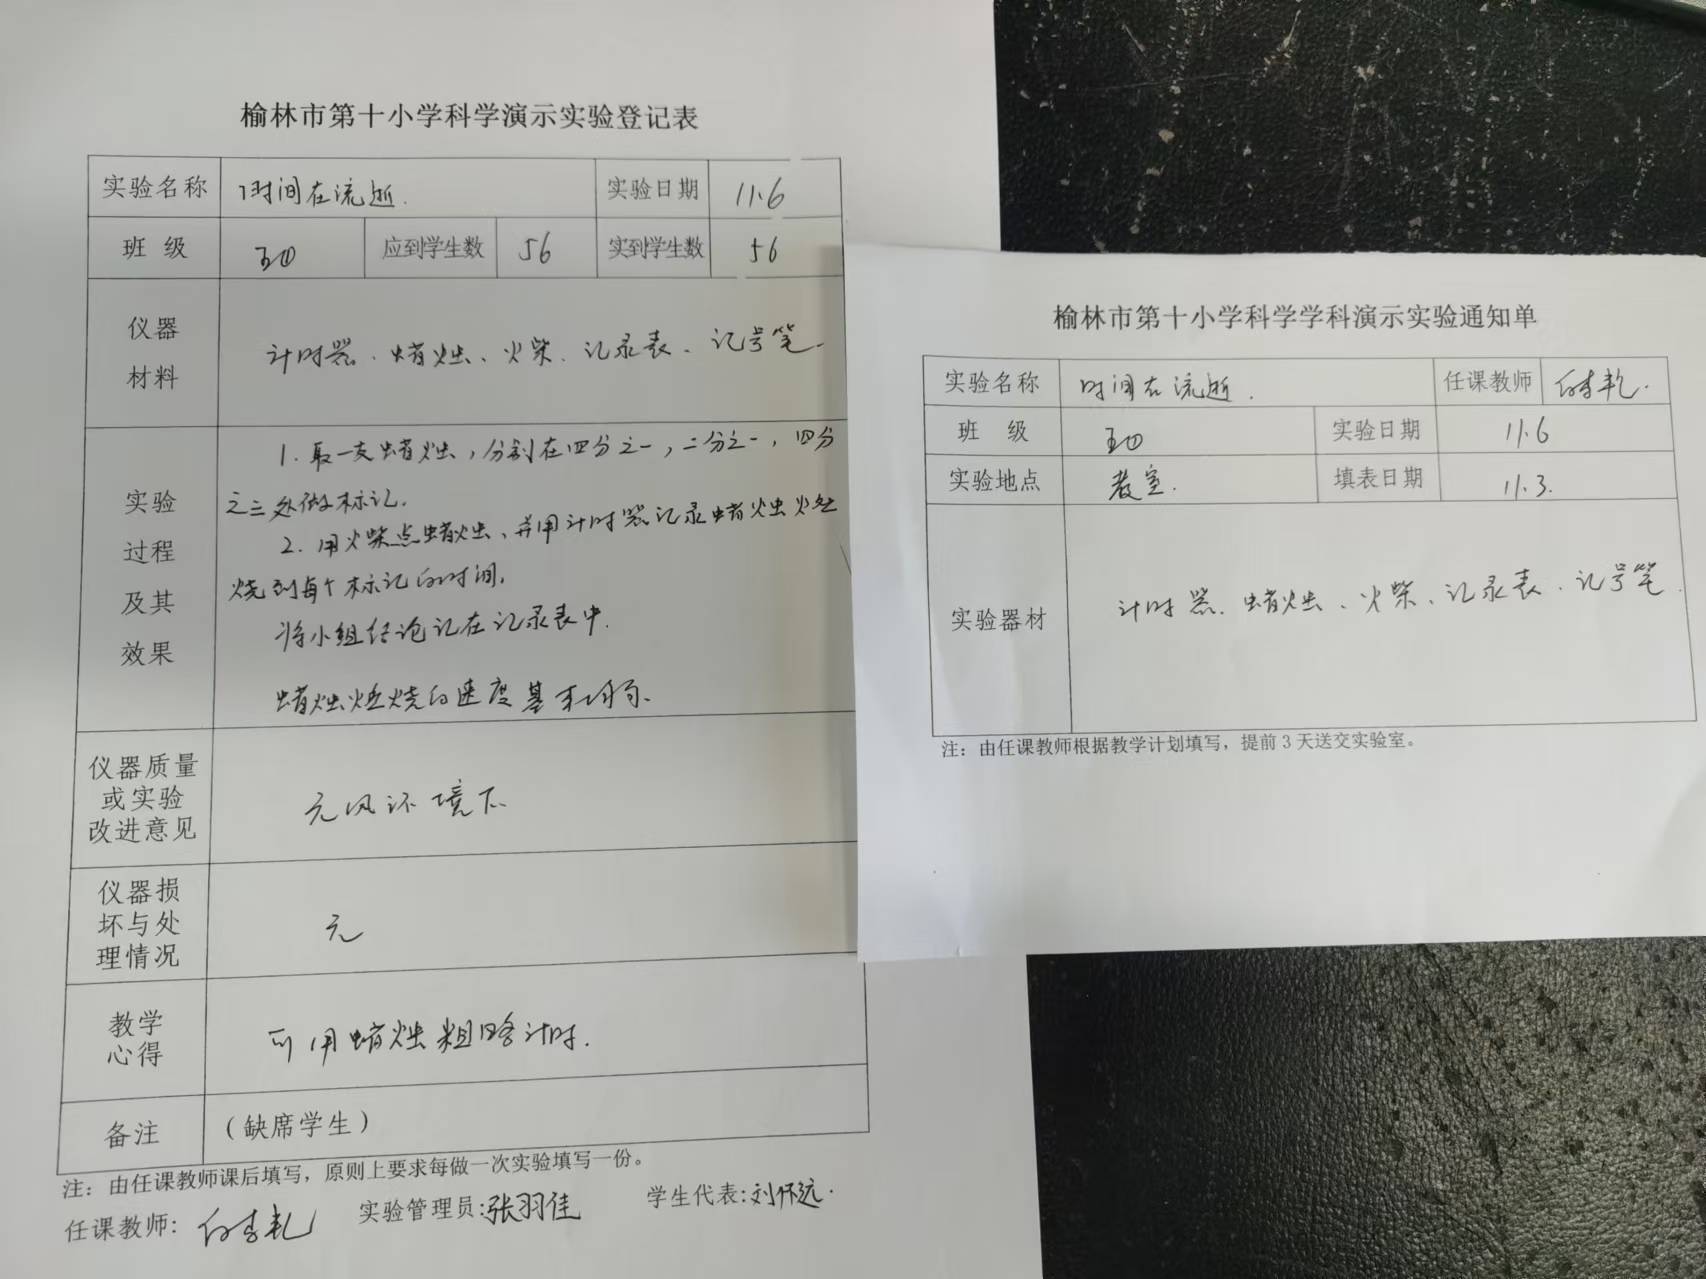 榆林市第十小学科学演示实验登记表
实验名称 时间在流逝. 实验日期 11.6
班 级 五四 应到学生数 56 实到学生数 56
仪器
材料
计时器、蜡烛、火柴、记录表、记号笔.
实验
过程
及其
效果
1. 取一支蜡烛,分别在四分之一,二分之一,四分
之三处做标记.
2. 用火柴点蜡烛、并用计时器记录蜡烛火燃
烧到每个标记的时间,
将小组结论记在记录表中.
蜡烛燃烧的速度基本均匀、
仪器质量
或实验
改进意见
无风环境下、
仪器损
坏与处
理情况
无
教学
心得
可用蜡烛粗略计时.
备注 (缺席学生)
注:由任课教师课后填写,原则上要求每做一次实验填写一份。
任课教师: 实验管理员:张羽佳 学生代表:刘怀远.
榆林市第十小学科学学科演示实验通知单
实验名称 时间在流逝. 任课教师
班 级 五四 实验日期 11.6
实验地点 教室. 填表日期 11.3.
实验器材 计时器、蜡烛、火柴、记录表、记号笔.
注:由任课教师根据教学计划填写,提前3天送交实验室。